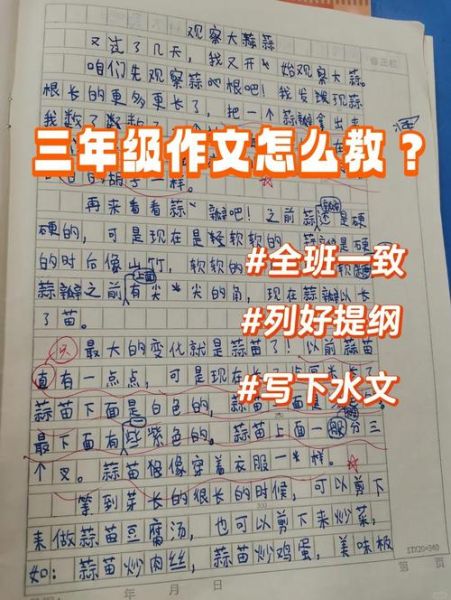 观察大蒜
又过了几天，我又开始观察大蒜。
咱们先观察蒜的根吧！我发现蒜
根长的更多更长了，把一个蒜瓣拿出来
三年级作文怎么教？
胡子一样。
再来看看蒜瓣吧！之前蒜还是硬
硬的，可是现在是软软的
的时后像山竹，软软的
#全班一致
蒜瓣之前有尖尖的角，现在蒜瓣以长
了苗。
#列好提纲
最大的变化就是蒜苗了！以前蒜苗
直有一点点，可是现在长
#写下水文
蒜苗下面是白色的，蒜苗
最下面有些紫色的。蒜苗上面一般分三
个叉。蒜苗很像穿着衣服一样。
等到芽长的很长的时候，可以剪下
来做蒜苗豆腐汤，也可以剪下来炒菜，
如：蒜苗炒肉丝，蒜苗炒鸡蛋，美味极
年 月 日
STX20×340
第 页